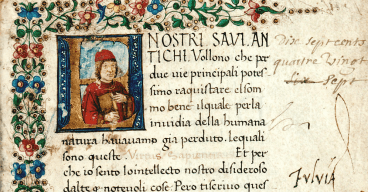 NOSTRI SAVI.AN
TICHI.Vollono che per
due uie principali potes
simo raquistare elsom
mo bene ilquale perla
inuidia della humana
natura hauauamo gia perduto. lequali
sono queste. Et per
che io sento lointellecto nostro disideroso
daltre noteuoli cose. Pero tiseriuo ques
Dix sept cents
quatre vingt
dix sept
FVLVIA